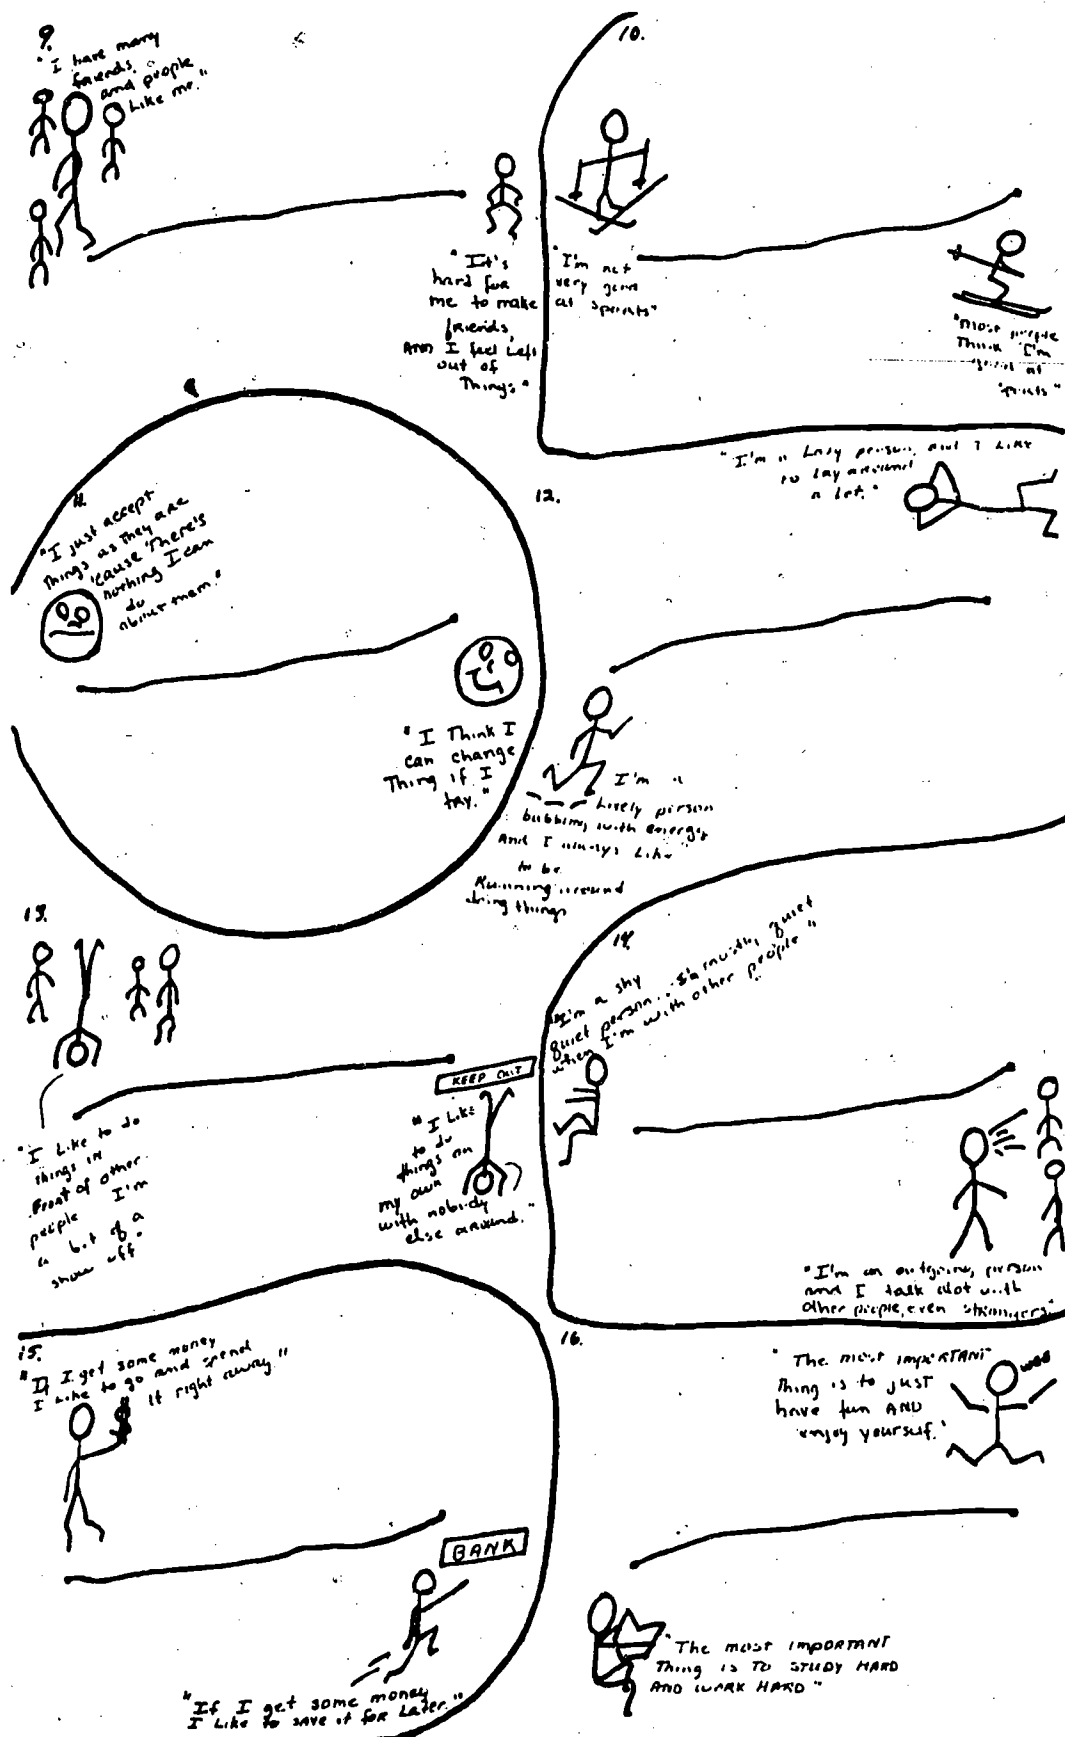 9.
"I have many
friends,
and people
Like me."
"It's
hard for
me to make
friends,
AND I feel Left
out of
Things"
10.
"I'm not
very good
at sports"
"most people
Think I'm
good at
sports"
11.
"I just accept
Things as They are
'cause There's
nothing I can
do
about them."
"I Think I
can change
Thing if I
try."
12.
"I'm a Lazy person, and I Like
to lay around
a lot."
I'm a
Lively person
bubbling with energy
And I always Like
to be
Running around
doing things
13.
"I Like to do
things in
front of other
people I'm
a bit of a
show off"
KEEP OUT
"I Like
to do
things on
my own
with nobody
else around."
14.
"I'm a shy
quiet person... I'm mostly quiet
when I'm with other people"
"I'm an outgoing person
and I talk alot with
other people, even strangers"
15.
"If I get some money
I Like to go and spend
it right away."
BANK
"If I get some money
I Like to save it for Later."
16.
"The most IMPORTANT
Thing is to JUST
have fun AND
enjoy yourself."
"The most IMPORTANT
Thing IS TO STUDY HARD
AND WORK HARD"